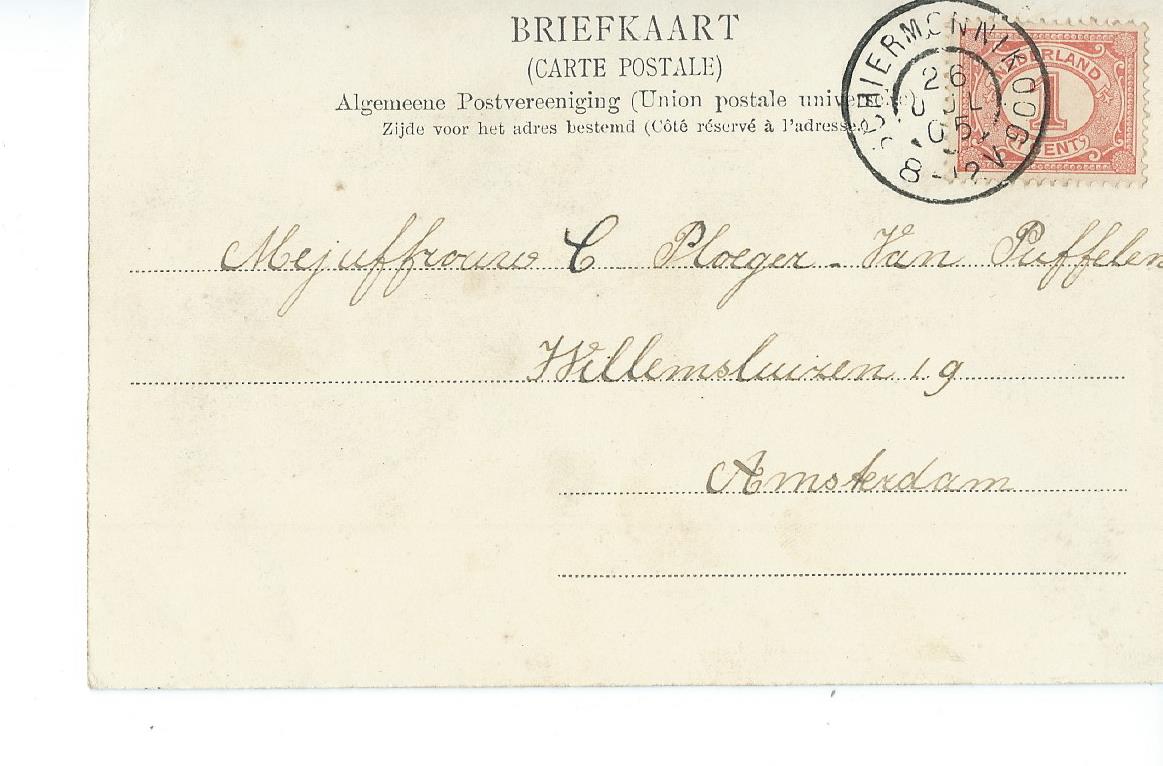 BRIEFKAART
(CARTE POSTALE)
Algemeene Postvereeniging (Union postale universelle)
Zijde voor het adres bestemd (Côté réservé à l'adresse.)
SCHIERMONNIKOOG
26
JUL
05
8-12 V
NEDERLAND
1
CENT
Mejuffrouw C Ploeger - Van Puffelen
Willemsluizen 19
Amsterdam